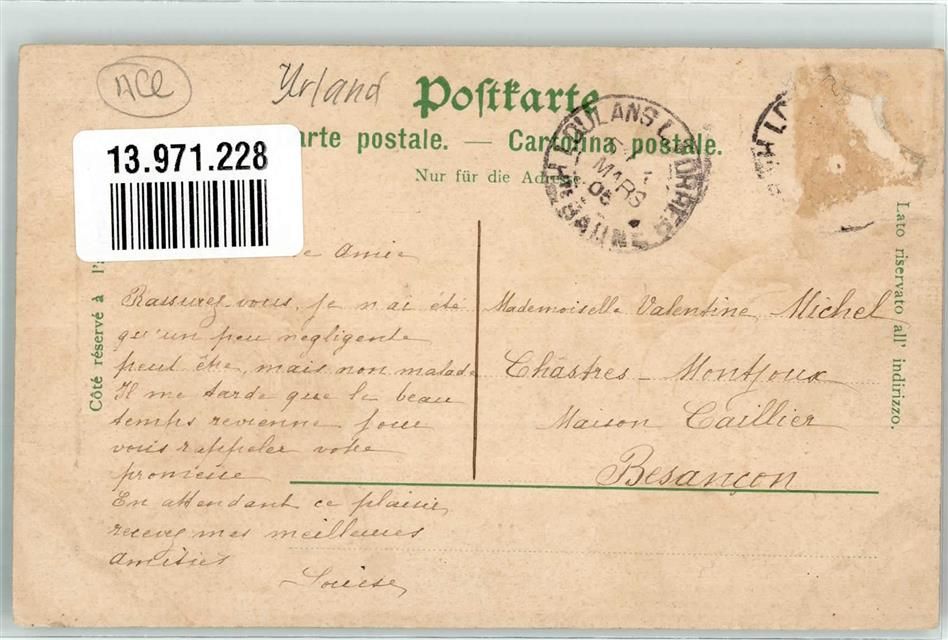 ACL
Yrland
Postkarte
arte postale. — Cartolina postale.
Nur für die Adresse
13.971.228
LOULANS LES FORGES
MARS
05
Hte SAONE
Côté réservé à l'a
Lato riservato all' indirizzo.
e Amie
Rassurez vous, je n'ai été
qu'un peu negligente
peut être, mais non malade
Il me tarde que le beau
temps revienne pour
vous rappeler votre
promesse
En attendant ce plaisir,
recevez mes meilleures
amitiés
Louise
Mademoiselle Valentine Michel
Châstres - Montjoux
Maison Caillier
Besançon